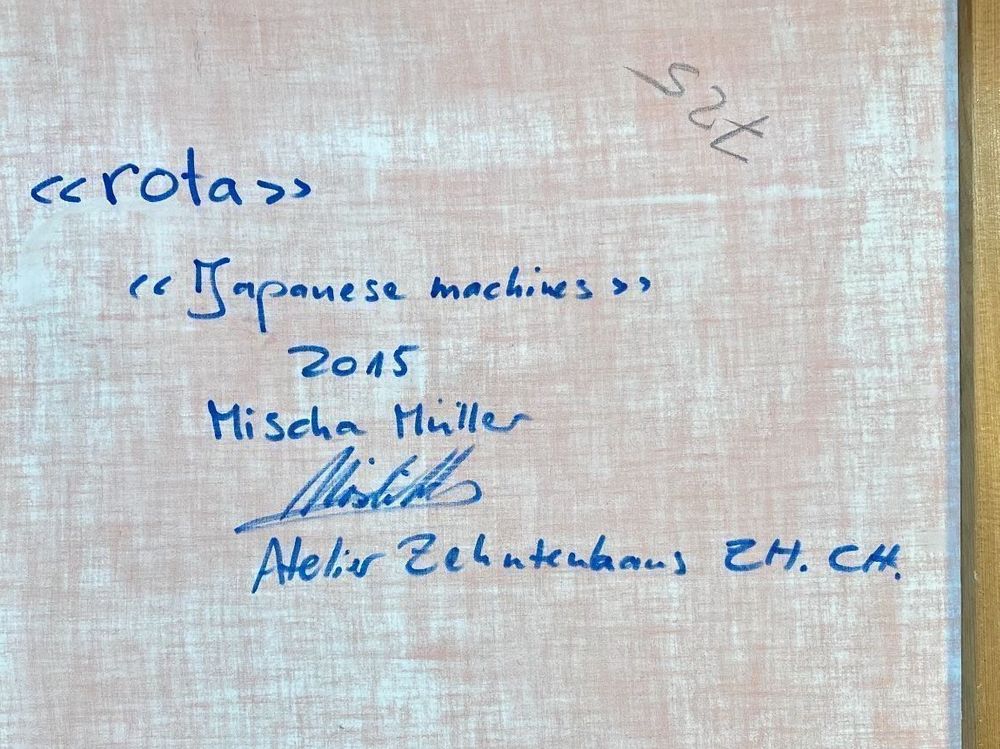 <<rota>>
<<Japanese machines>>
2015
Mischa Müller
Atelier Zehntenhaus ZH. CH.